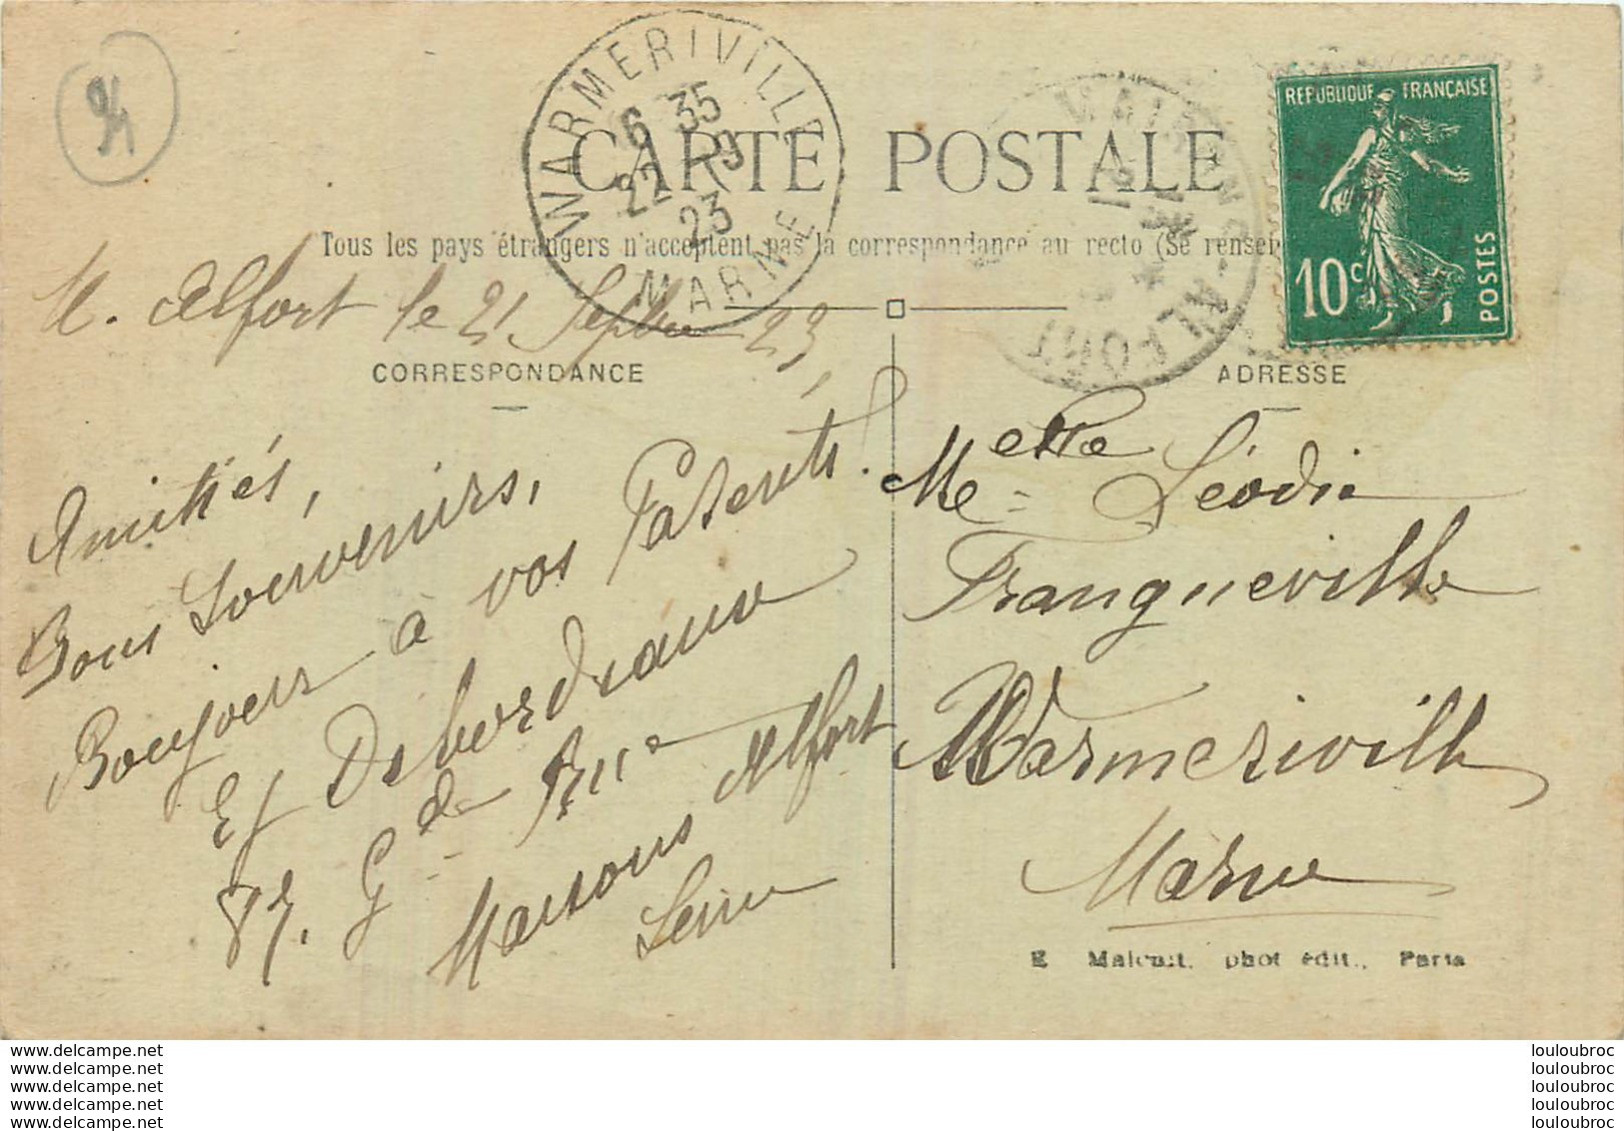 94
WARMERIVILLE
6 35
22 -9
23
MARNE
MAISONS-ALFORT
REPUBLIQUE FRANÇAISE
10 c
POSTES
CARTE POSTALE
Tous les pays étrangers n'acceptent pas la correspondance au recto (Se rensei
M. Alfort le 21 Septbre 23,
CORRESPONDANCE
ADRESSE
Amitiés,
Bons Souvenirs,
Bonjour à vos Parents!
Debordeaux
87. Gde Rue
Maisons Alfort
Seine
Melle Léodie
Franqueville
Warmeriville
Marne
E Malcuit, phot édit., Paris
www.delcampe.net
www.delcampe.net
www.delcampe.net
www.delcampe.net
www.delcampe.net
louloubroc
louloubroc
louloubroc
louloubroc
louloubroc